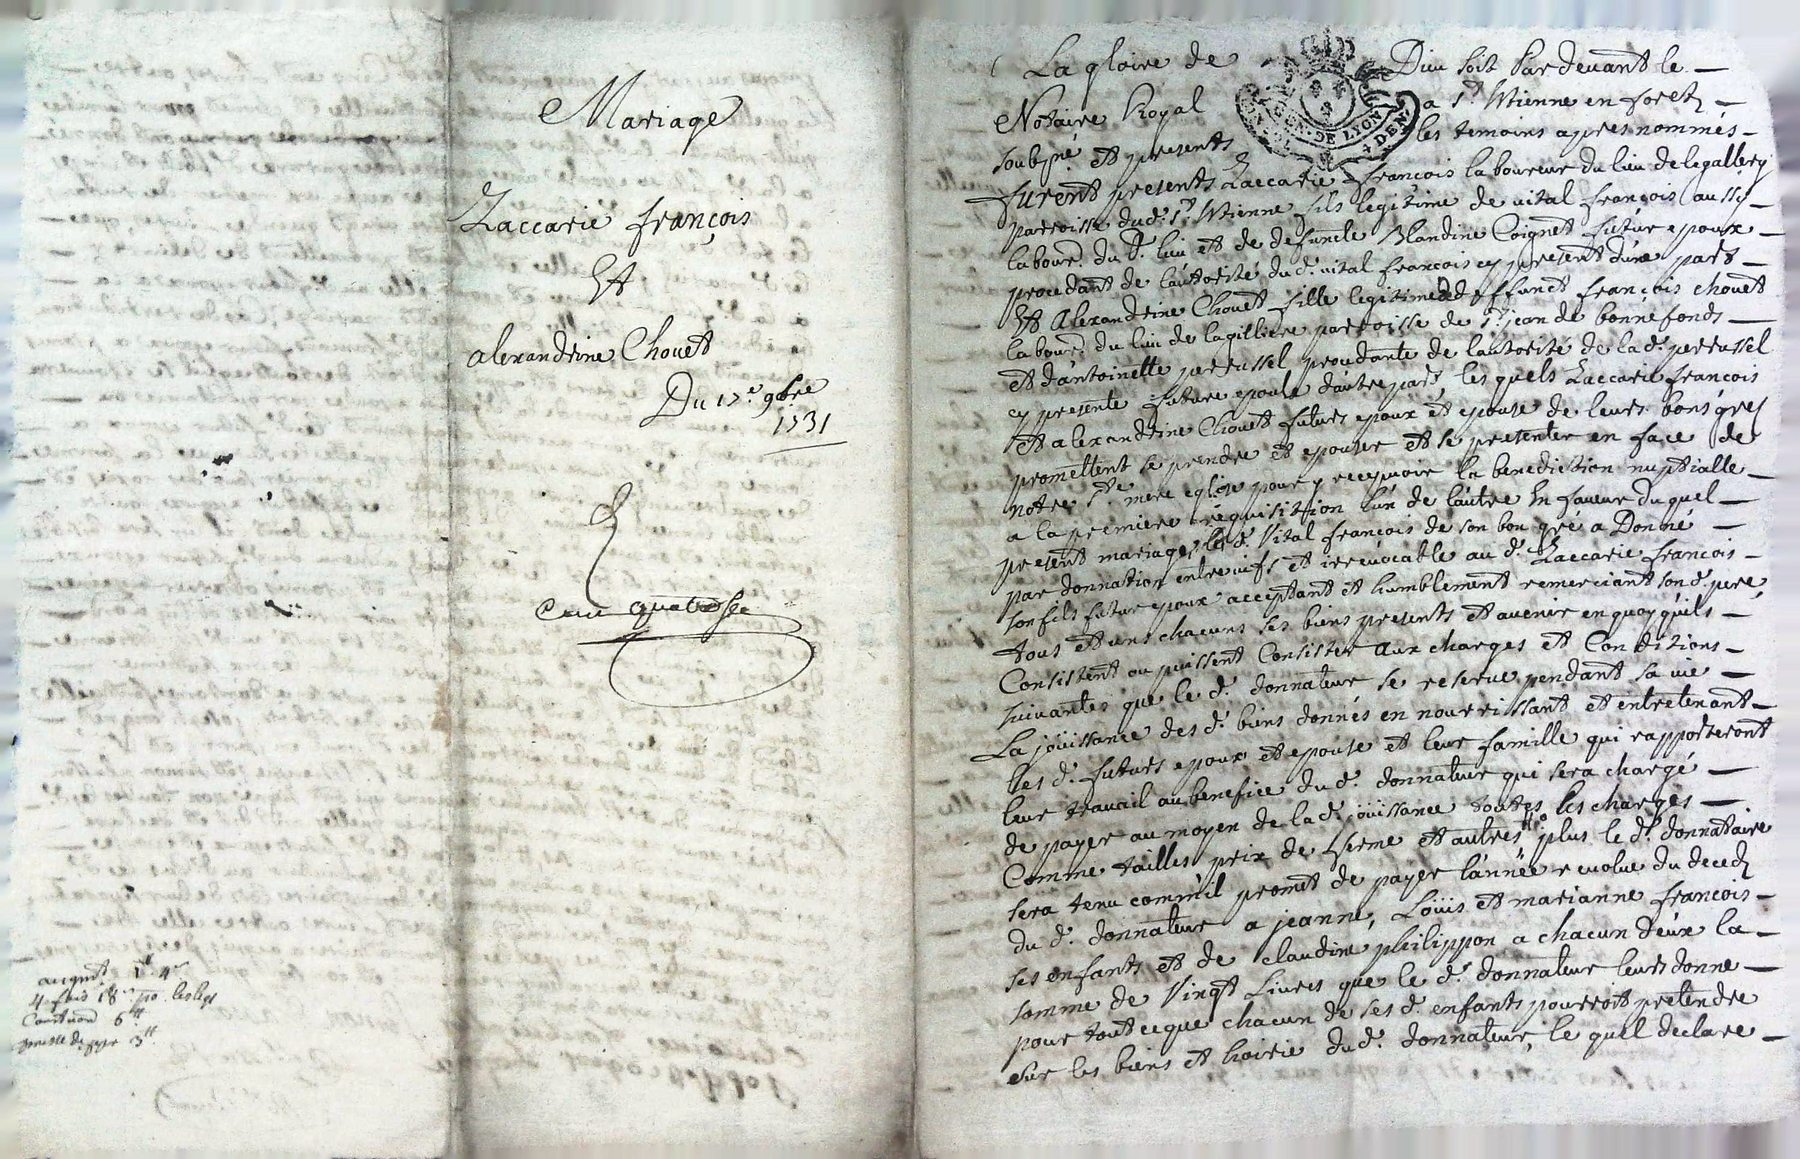 Mariage
Zaccarie françois
Et
alexandrine Chouet
Du 17.e 9bre
1731
augmt.
4 fois 18
6 tt
3 tt
La gloire de Dieu soit Pardevant le
Notaire Royal a St. Etienne en foretz
soubzné et presents les temoins apres nommés
furent presents Zaccarie françois laboureur du lieu de legallery
parroisse dud. St. Etienne fils legitime de vital françois aussy
labour. du d. lieu et de defuncte Blandine Coignet futur epoux
procedant de l'autorité dud. vital francois cy present d'une part
Et Alexandrine Chouet fille legitime de deffunct françois chouet
labour. du lieu de lagilliere parroisse de St. jean de bonnefonds
et d'antoinette perrussel procedante de l'autorité de lad. perrussel
cy presente future epouse d'autre part, les quels Zaccarie francois
et alexandrine Chouet futurs epoux et epouse de leurs bons grez
promettent se prendre et epouser et se presenter en face de
notre Ste mere eglise pour y recepvoir la benediction nuptialle
a la premiere requisition l'un de l'autre En faveur du quel
present mariage led. Vital françois de son bon gré a Donné
par donnation entre vifs et irrevocable au d. Zaccarie francois
son fils futur epoux acceptant et humblement remerciant sond. pere
tous et uns chacuns ses biens presents et avenir en quoy qu'ils
Consistent ou puissent Consister aux charges et Conditions
suivantes que le d. donnateur se reserve pendant sa vie
La joüissance des d. biens donnés en nourrissant et entretenant
les d. futurs epoux et epouse et leur famille qui rapporteront
leur travail au benefice dud. donnateur qui sera chargé
de payer au moyen de lad. joüissance toutes les charges
Comme tailles prix de ferme et autres plus le d. donnataire
sera tenu comm'il promet de payer l'année revolue du decedz
du d. donnateur a jeanne, Loüis et marianne francois
ses enfants et de claudine philippon a chacun d'eux la
somme de Vingt Livres que le d. donnateur leurs donne
pour tout ce que chacun de ses d. enfants pourroit pretendre
sur les biens et hoirie dud. donnateur, le quel declare
GEN. DE LYON